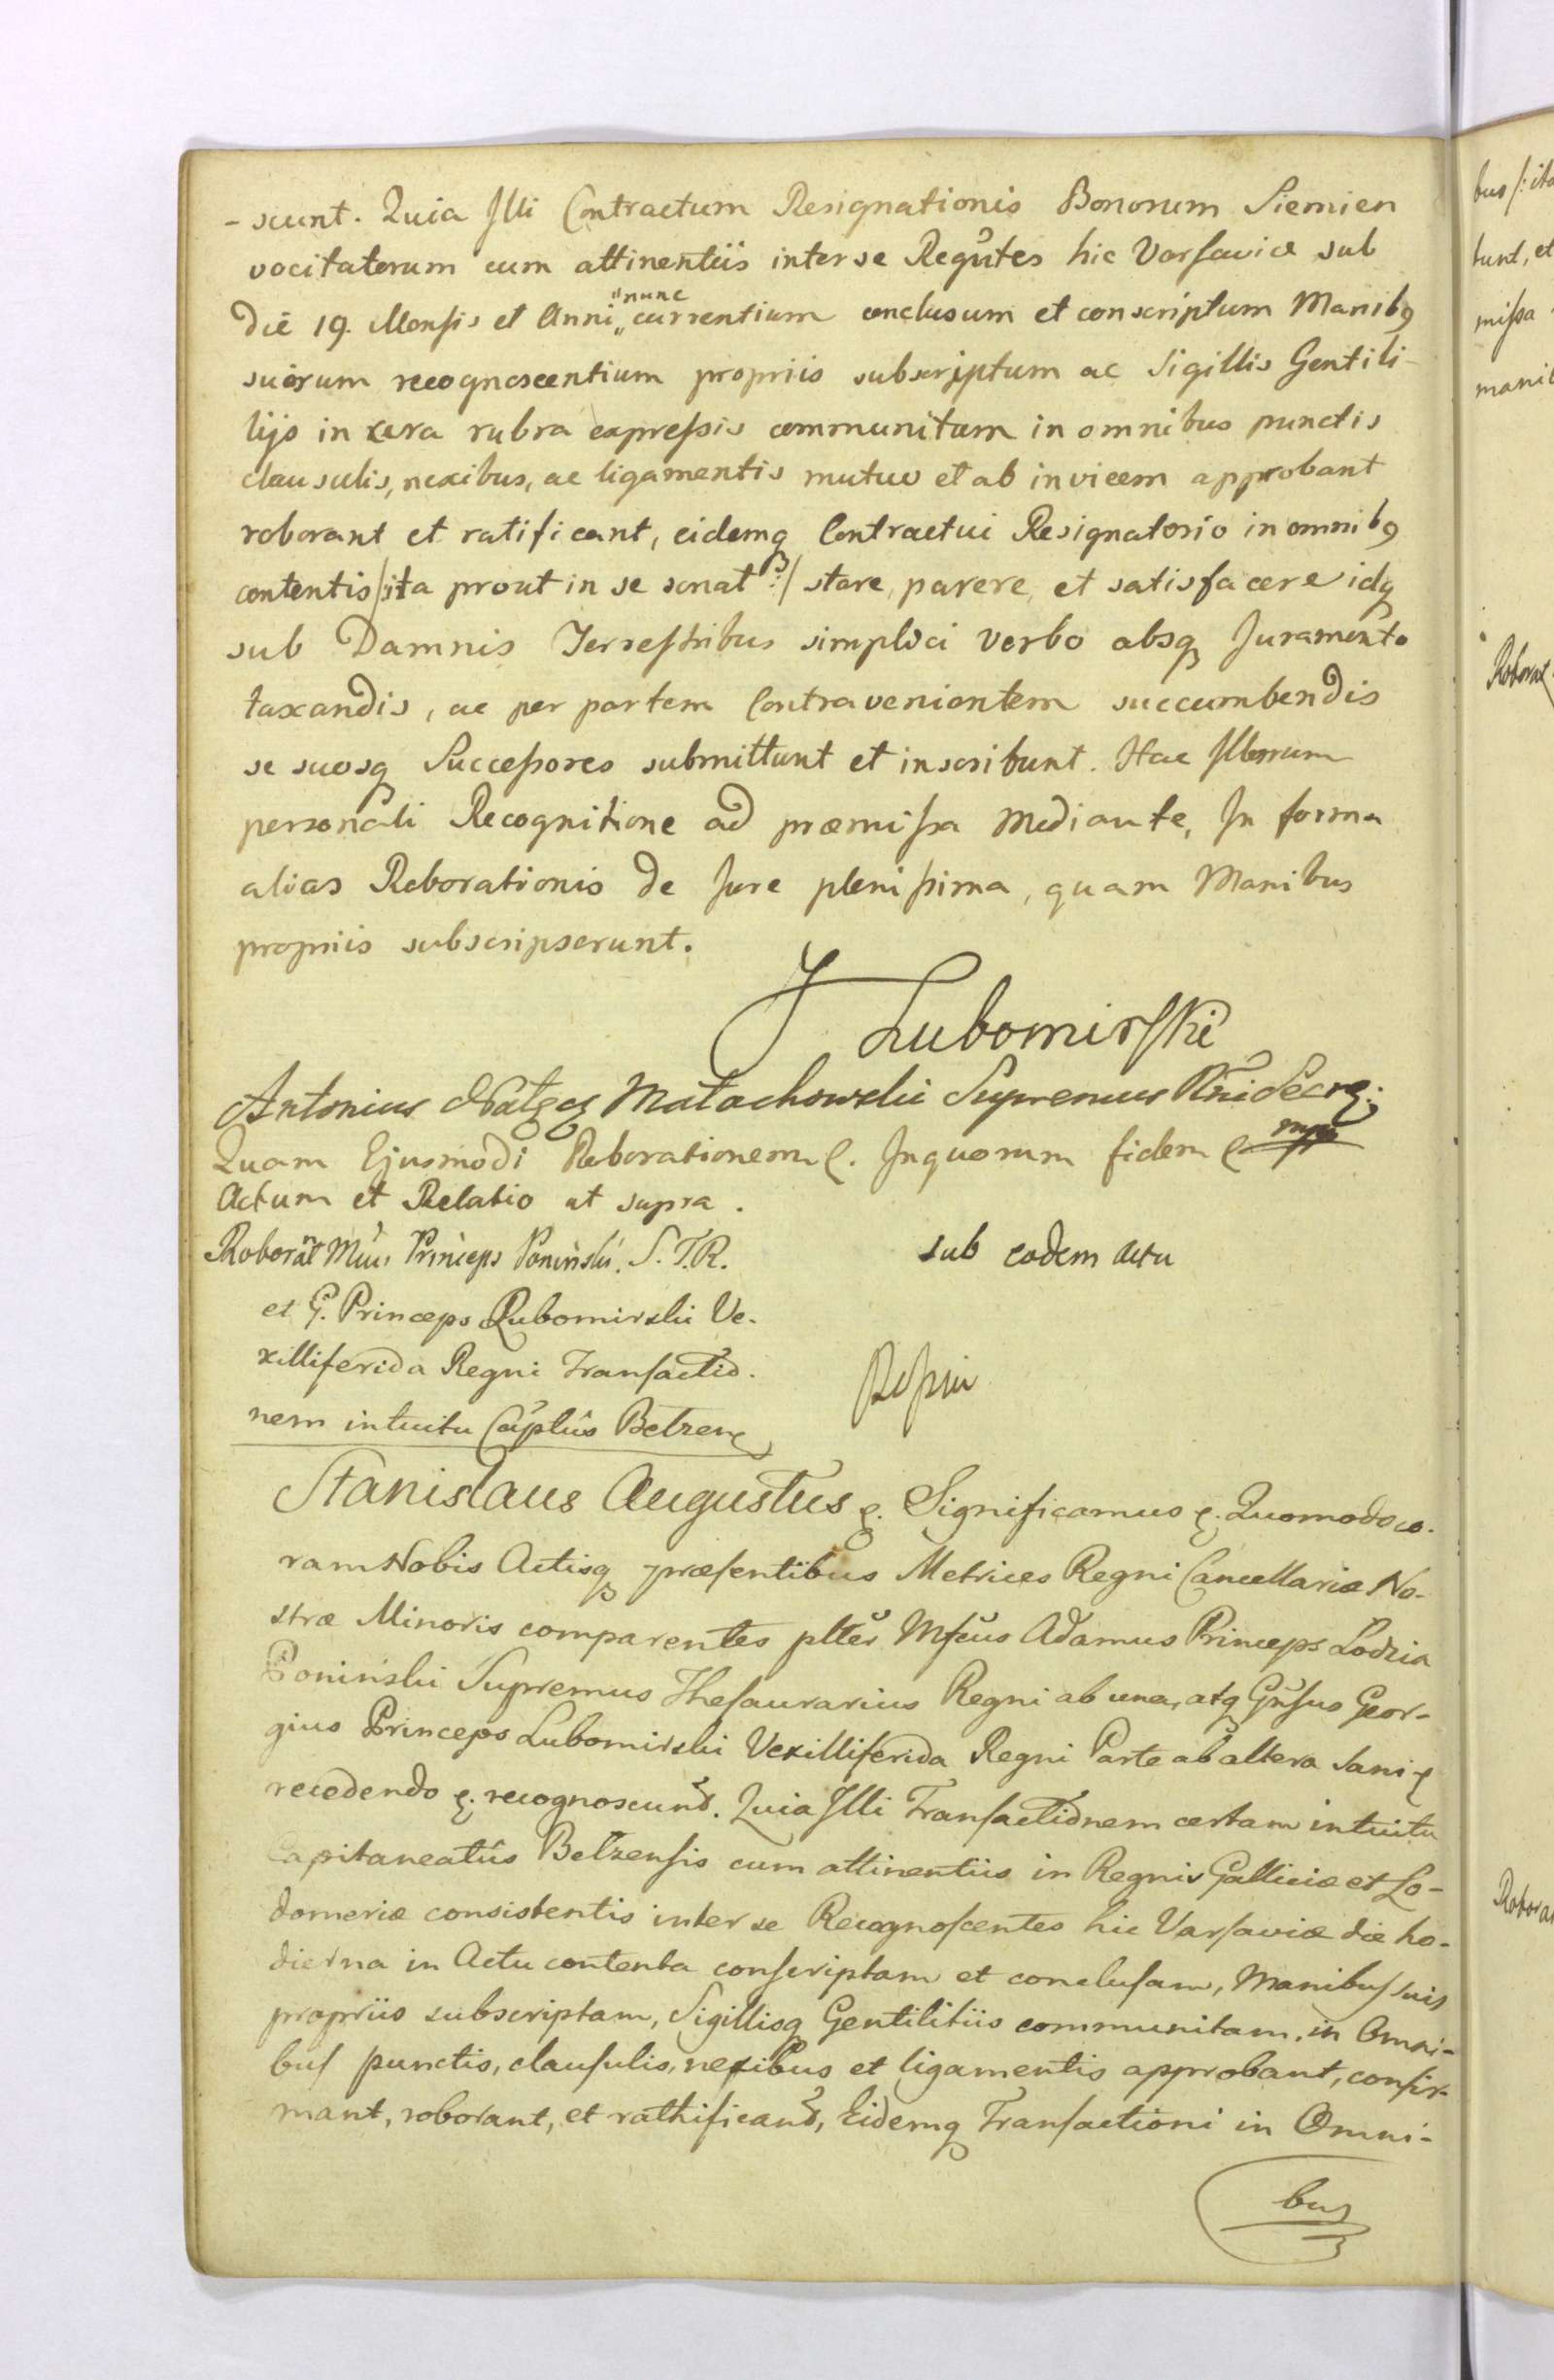 - scunt. Quia Illi Contractum Resignationis Bonorum Siemien
vocitatorum cum attinentiis inter se Regntes hic Varsaviæ sub
die 19. Mensis et Anni „nunc currentium conclusum et conscriptum Manibq
suorum recognoscentium propriis subscriptum ac Sigillis Gentili-
lijs in cera rubra expressis communitum in omnibus punctis
clausulis, nexibus, ac ligamentis mutuo et ab invicem approbant
roborant et ratificant, eidemq Contractui Resignatorio in omnibq
contentis /:ita prout in se sonat:/ stare, parere, et satisfacere idq
sub Damnis Terrestribus simplici verbo absq Juramento
taxandis, ac per partem Contravenientem succumbendis
se suosq Successores submittunt et inscribunt. Hac Illorum
personali Recognitione ad præmissa Mediante, In forma
alias Roborationis de Jure plenissima, quam Manibus
propriis subscripserunt.
J Lubomirski
Antonius Małachowski Supremus Rni Secrę:
Quam Ejusmodi Roborationem ę. In quorum fidem ę mpp
Actum et Relatio ut supra.
Roborãt Mcus Princeps Poniński. S. T. R.
et G. Princeps Lubomirski Ve-
xilliferida Regni Transactio-
nem intuitu Captûs Belzenę
sub eodem Actu
Stanislaus Augustus ę. Significamus ę. Quomodo co-
ram Nobis Actisq præsentibus Metrices Regni Cancellariæ No-
stræ Minoris comparentes pltes Mfcus Adamus Princeps Lodzia
Poniński Supremus Thesaurarius Regni ab una, atq Gnsus Geor-
gius Princeps Lubomirski Vexilliferida Regni Parte ab altera Sani ę
recedendo ę. recognoscunt. Quia Illi Transactionem certam intuitu
Capitaneatûs Belzensis cum attinentiis in Regnis Galliciæ et Lo-
domeriæ consistentis inter se Recognoscentes hic Varsaviæ die ho-
dierna in Actu contenta conscriptam et conclusam, Manibus suis
propriis subscriptam, Sigillisq Gentilitiis communitam, in Omni-
bus punctis, clausulis, nexibus et ligamentis approbant, confir-
mant, roborant, et rathificant, Eidemq Transactioni in Omni-
bus